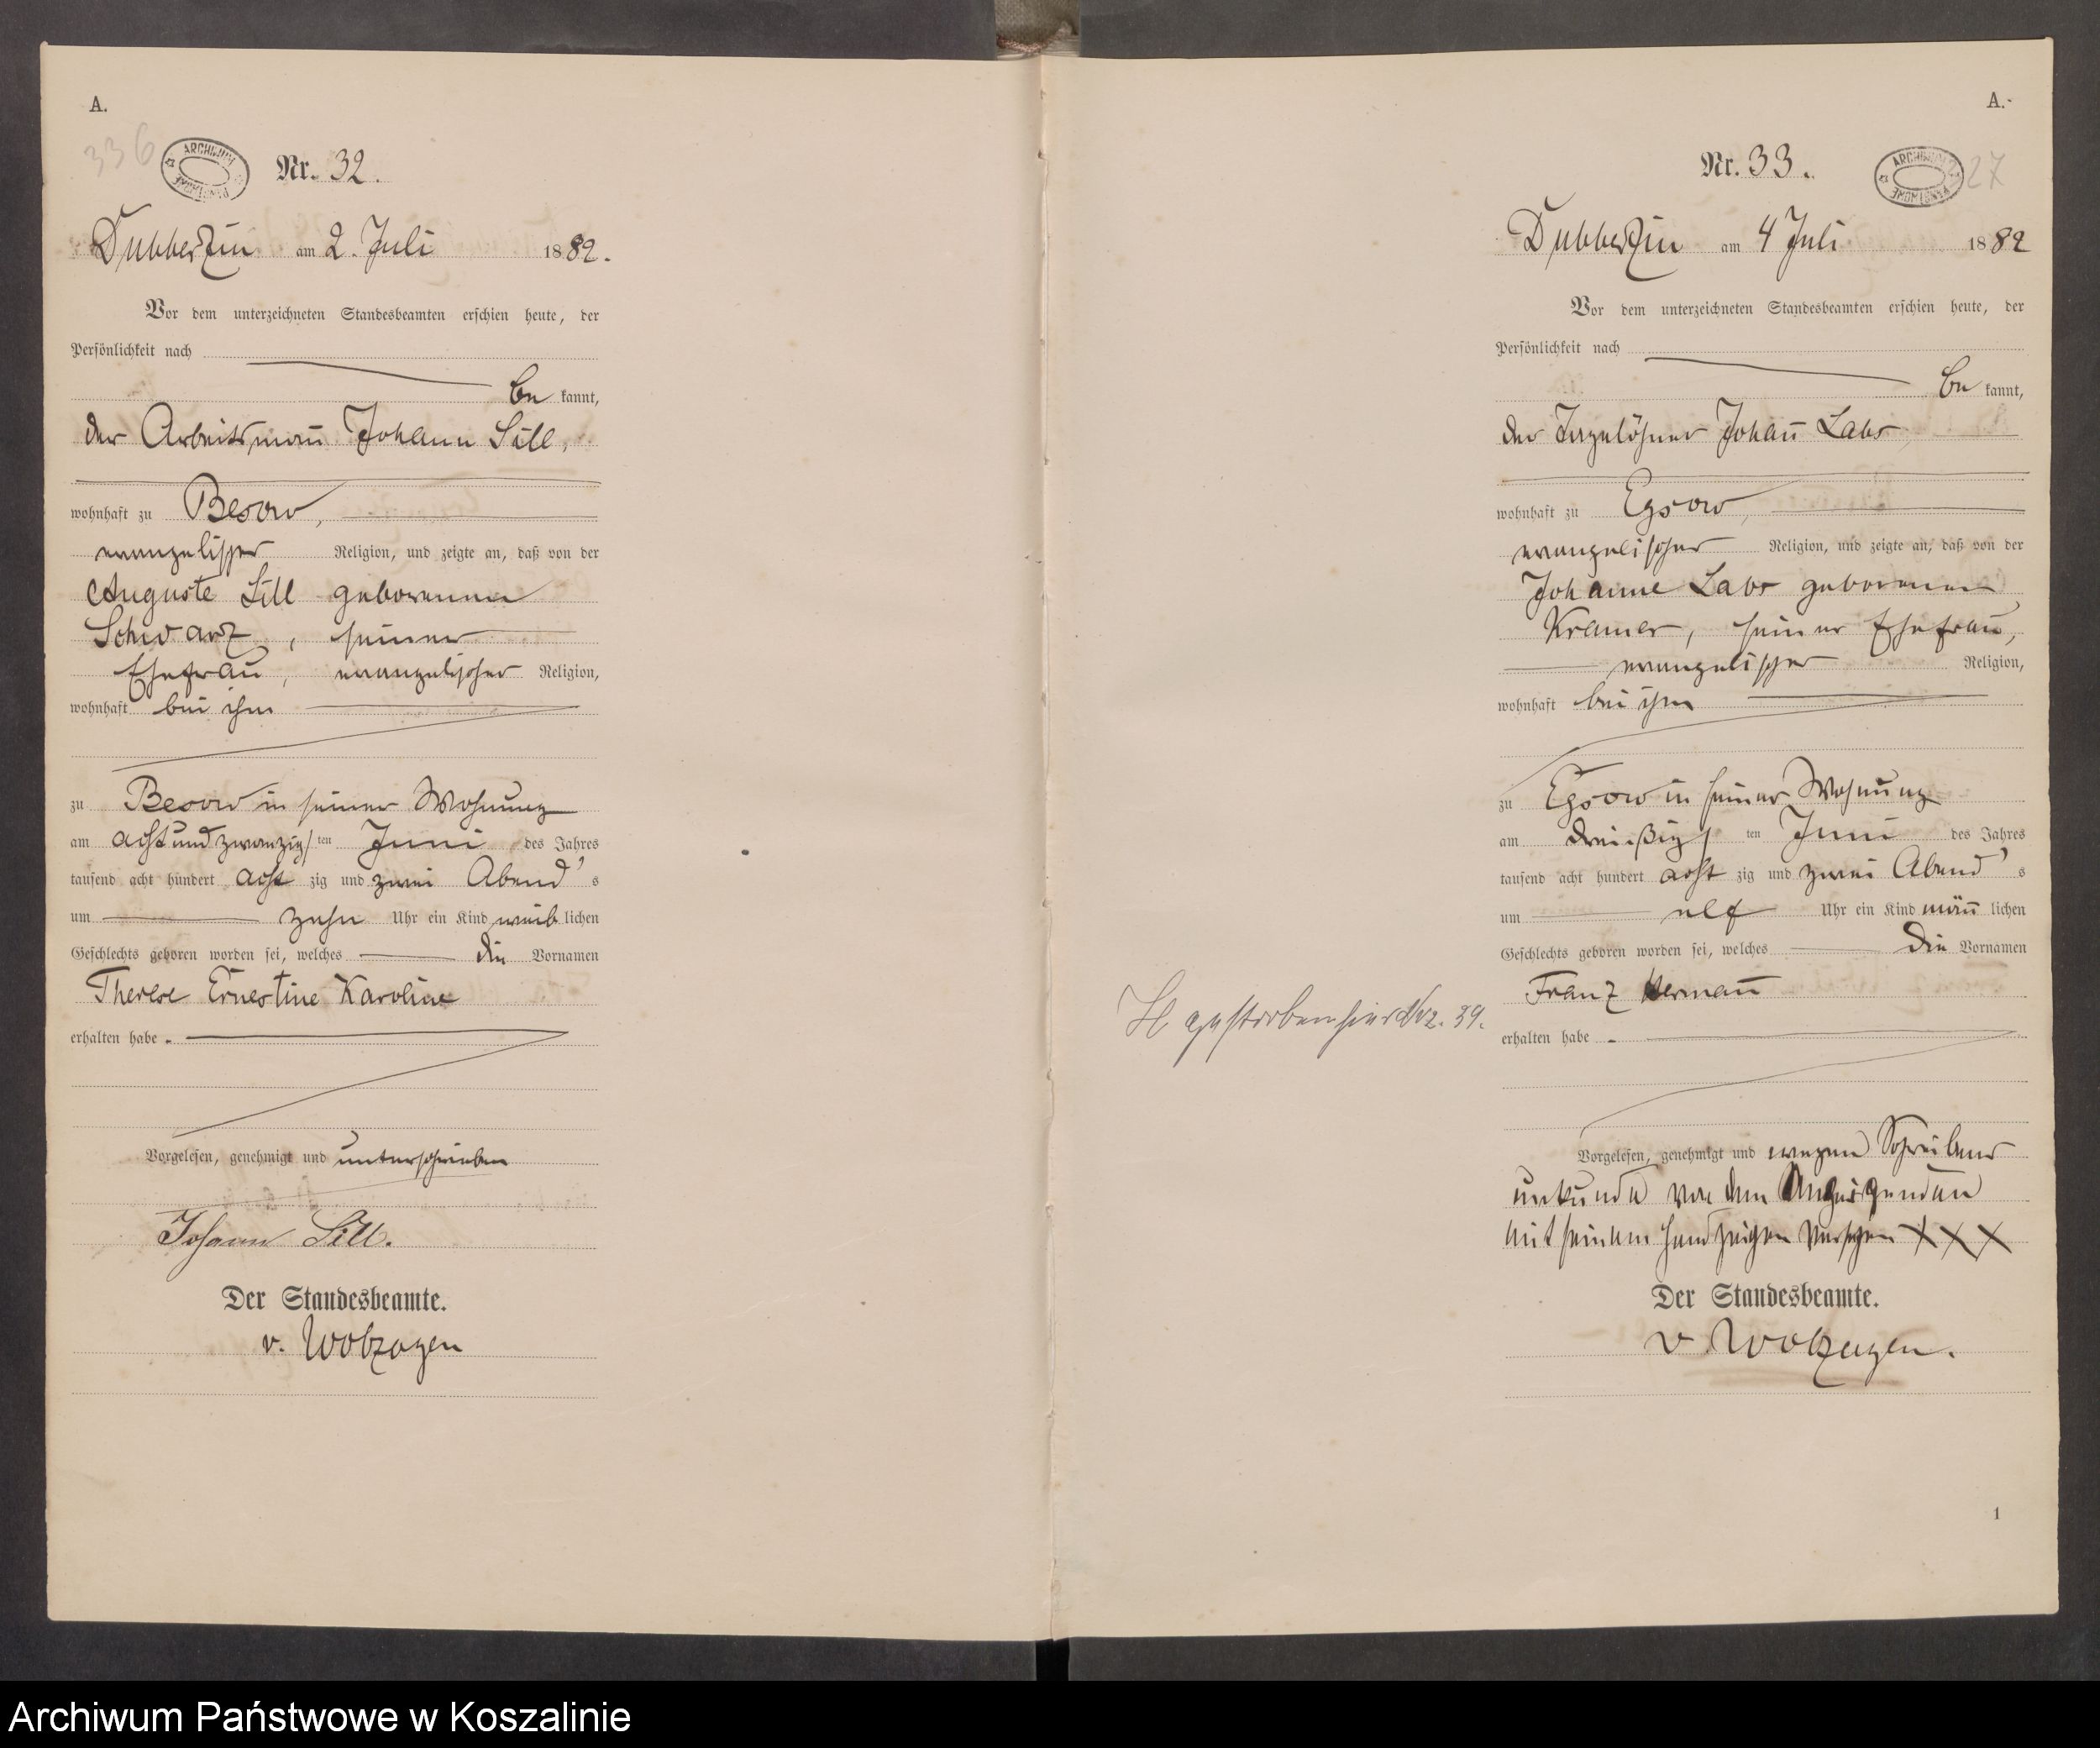 A.
336
ARCHIWUM PAŃSTWOWE
Nr. 32.
Dubberzin am 2. Juli 1882.
Vor dem unterzeichneten Standesbeamten erschien heute, der
Persönlichkeit nach
be kannt,
der Arbeitsmañ Johann Sill,
wohnhaft zu Besow,
evangelischer Religion, und zeigte an, daß von der
Auguste Sill geborenen
Schwarz, seiner
Ehefrau, evangelischer Religion,
wohnhaft bei ihm
zu Besow in seiner Wohnung
am achtundzwanzigsten Juni des Jahres
tausend acht hundert acht zig und zwei Abend's
um zehn Uhr ein Kind weib lichen
Geschlechts geboren worden sei, welches die Vornamen
Therese Ernestine Karoline
erhalten habe.
Vorgelesen, genehmigt und unterschrieben
Johann Sill.
Der Standesbeamte.
v. Wolzogen
A.
Nr. 33.
ARCHIWUM PAŃSTWOWE
27
Dubberzin am 4 Juli 1882
Vor dem unterzeichneten Standesbeamten erschien heute, der
Persönlichkeit nach
be kannt,
der Tagelöhner Johañ Labs
wohnhaft zu Egsow,
evangelischer Religion, und zeigte an, daß von der
Johanne Labs geborenen
Kramer, seiner Ehefrau,
evangelischer Religion,
wohnhaft bei ihm
zu Egsow in seiner Wohnung
am dreißigsten Juni des Jahres
tausend acht hundert acht zig und zwei Abend's
um elf Uhr ein Kind mäñ lichen
Geschlechts geboren worden sei, welches die Vornamen
Franz Hermañ
erhalten habe.
H gestorben hier Nr. 39.
Vorgelesen, genehmigt und wegen Schreibens
unkunde von dem Anzeigenden
mit seinem Handzeichen versehen XXX
Der Standesbeamte.
v Wolzogen.
1
Archiwum Państwowe w Koszalinie